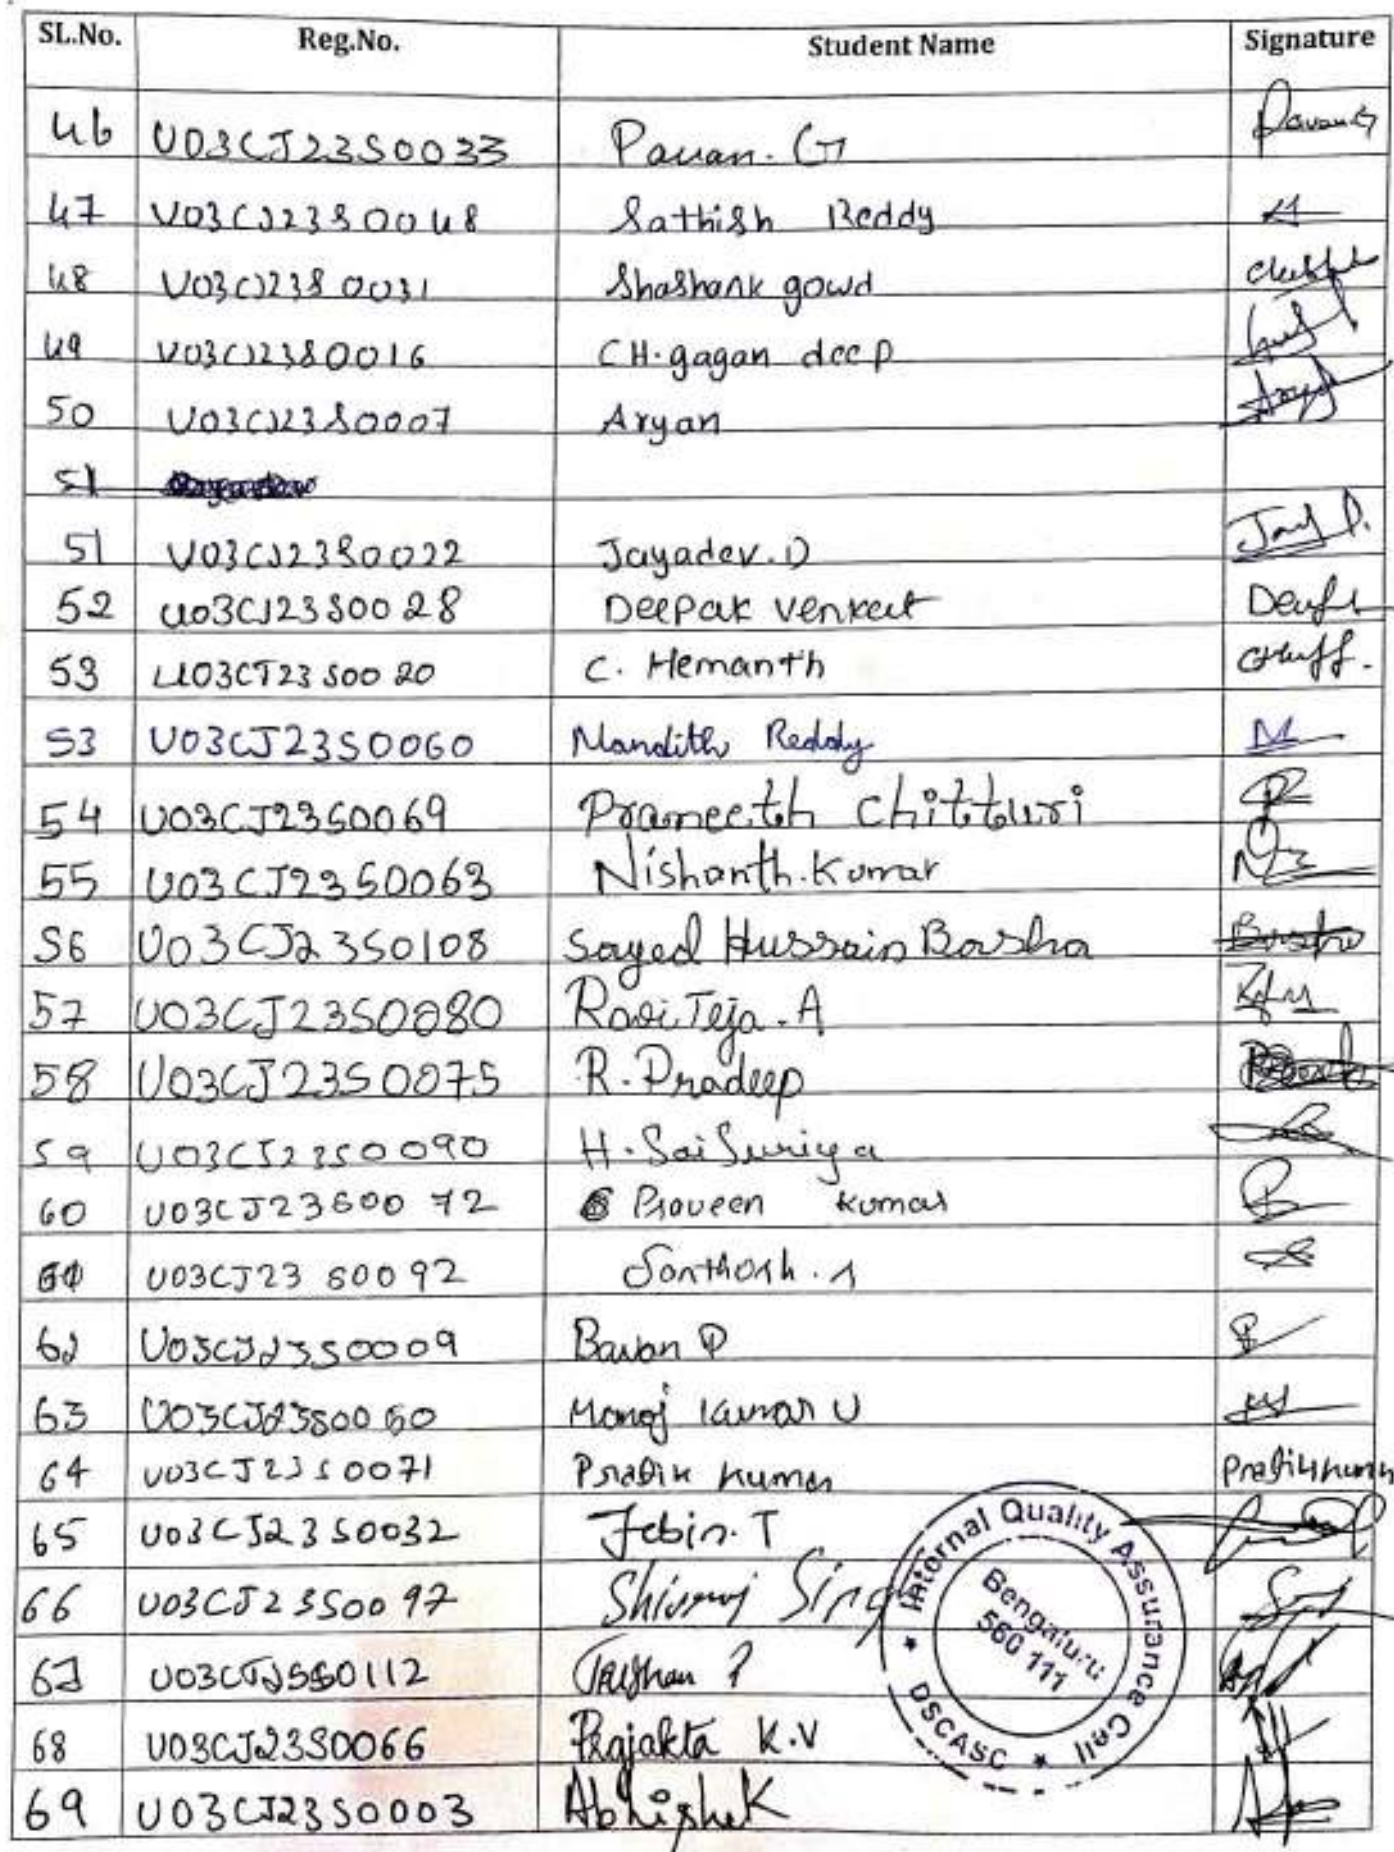 SL.No. Reg.No. Student Name Signature
46 U03CJ23S0033 Pavan. G Pavan G
47 U03CJ23S0048 Sathish Reddy
48 U03CJ23S0031 Shashank gowd
49 U03CJ23S0016 CH. gagan deep
50 U03CJ23S0007 Aryan
51
51 U03CJ23S0022 Jayadev. D
52 U03CJ23S0028 Deepak venkat
53 U03CJ23S0020 C. Hemanth
53 U03CJ23S0060 Mandith Reddy
54 U03CJ23S0069 Prameeth Chitturi
55 U03CJ23S0063 Nishanth. Kumar
56 U03CJ23S0108 Sayed Hussain Basha Basha
57 U03CJ23S0080 Ravi Teja. A
58 U03CJ23S0075 R. Pradeep
59 U03CJ23S0090 H. Sai Suriya
60 U03CJ23S0072 Praveen Kumar
61 U03CJ23S0092 Santhosh. s
62 U03CJ23S0009 Bavan P
63 U03CJ23S0050 Manoj Kumar U
64 U03CJ23S0071 Pratik Kumar Pratik Kumar
65 U03CJ23S0032 Jebin. T
66 U03CJ23S0097 Shivraj Sing
67 U03CJ23S0112
68 U03CJ23S0066 Prajakta K.V
69 U03CJ23S0003 Abhishek
Internal Quality Assurance Cell
DSCASC
Bengaluru
560 111